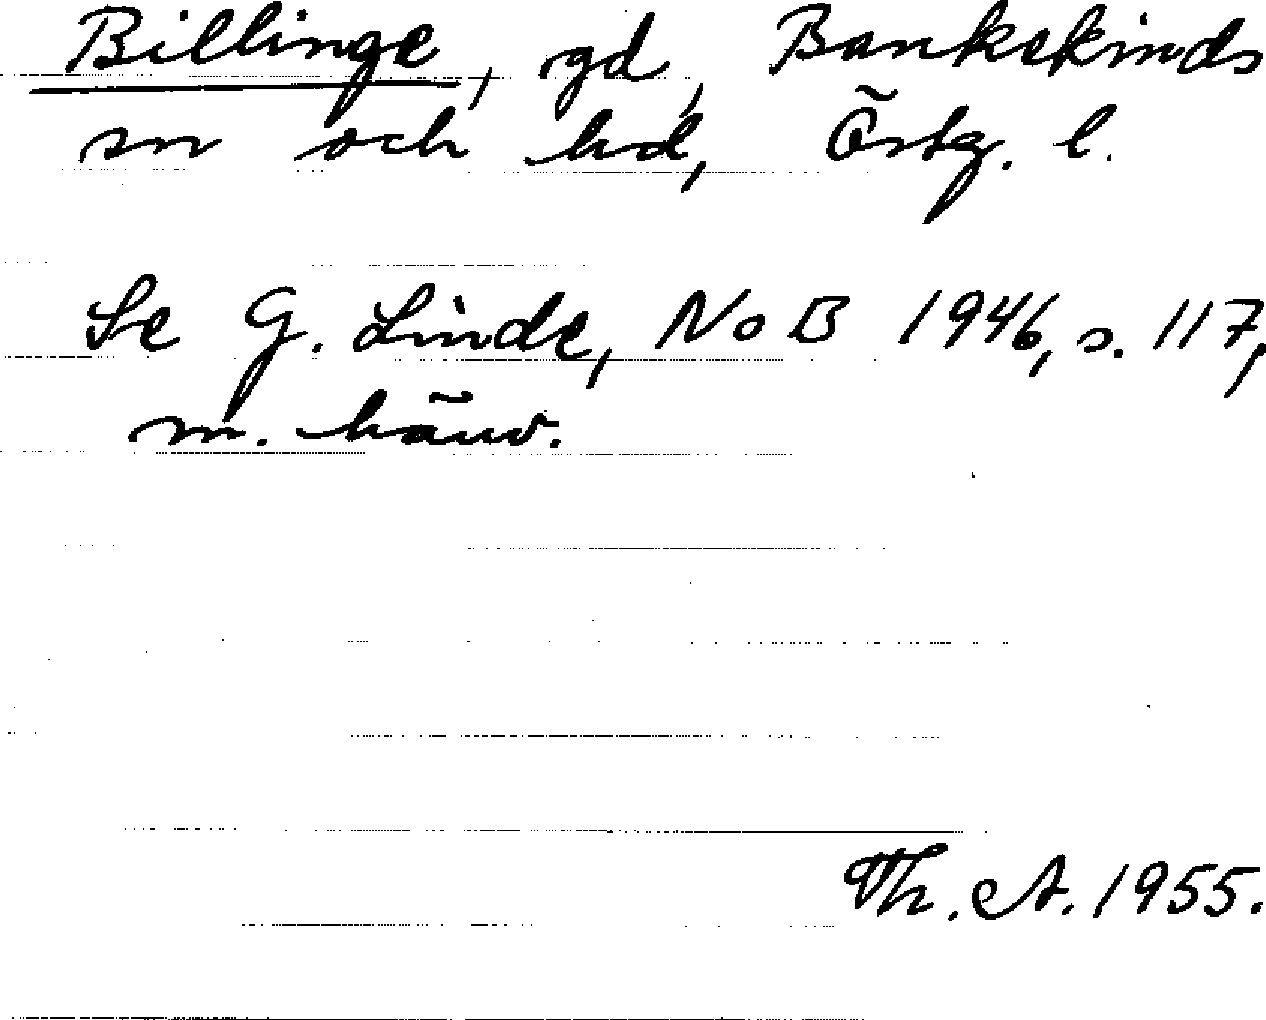 Billinge, gd, Bankekinds
sn och hd, Östg. l.
Se G. Linde, NoB 1946, s. 117,
m. hänv.
Th. A. 1955.